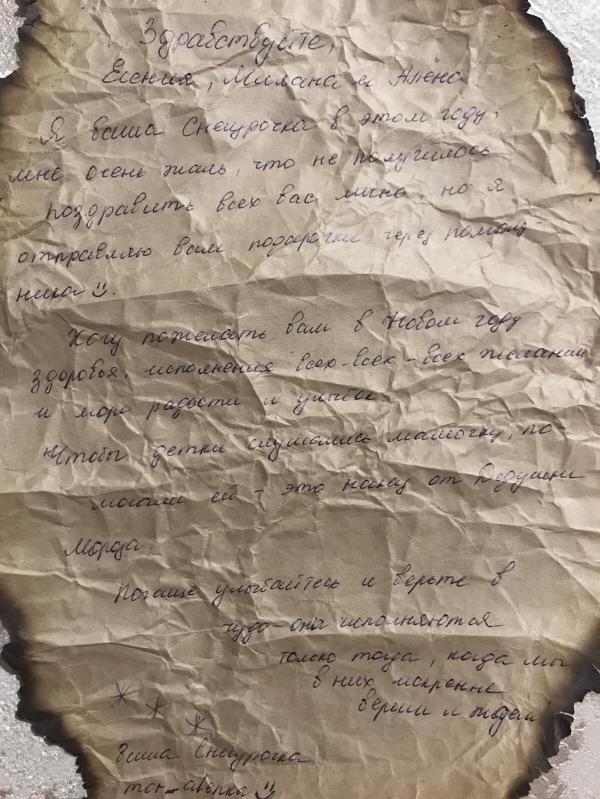 Здравствуйте,
Есения, Милана и Алёна
Я ваша Снегурочка в этом году,
мне очень жаль, что не получилось
поздравить всех вас лично, но я
отправляю вам подарочки через помощ-
ника☺.
Хочу пожелать вам в Новом году
здоровья, исполнения всех-всех-всех желаний
и море радости и улыбок
Чтобы детки слушались мамочку, по-
могали ей - это наказ от Дедушки
Мороза.
Почаще улыбайтесь и верьте в
чудо-они исполняются
только тогда, когда мы
в них искренне
верим и ждём
Ваша Снегурочка
☺